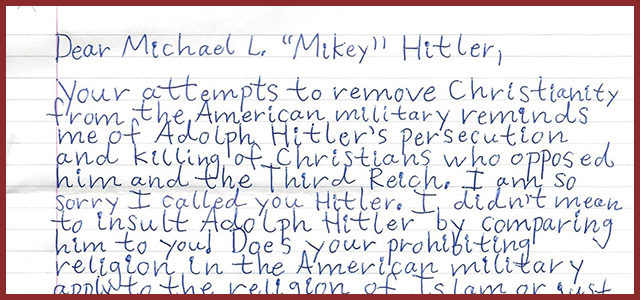 Dear Michael L. "Mikey" Hitler,
Your attempts to remove Christianity
from the American military reminds
me of Adolph Hitler's persecution
and killing of Christians who opposed
him and the Third Reich. I am so
sorry I called you Hitler. I didn't mean
to insult Adolph Hitler by comparing
him to you! Does your prohibiting
religion in the American military
apply to the religion of Islam or just